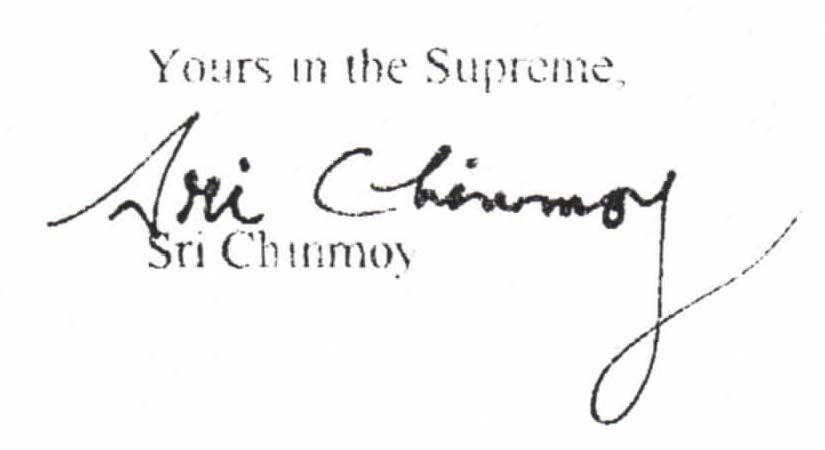 Yours in the Supreme,
Sri Chinmoy
Sri Chinmoy